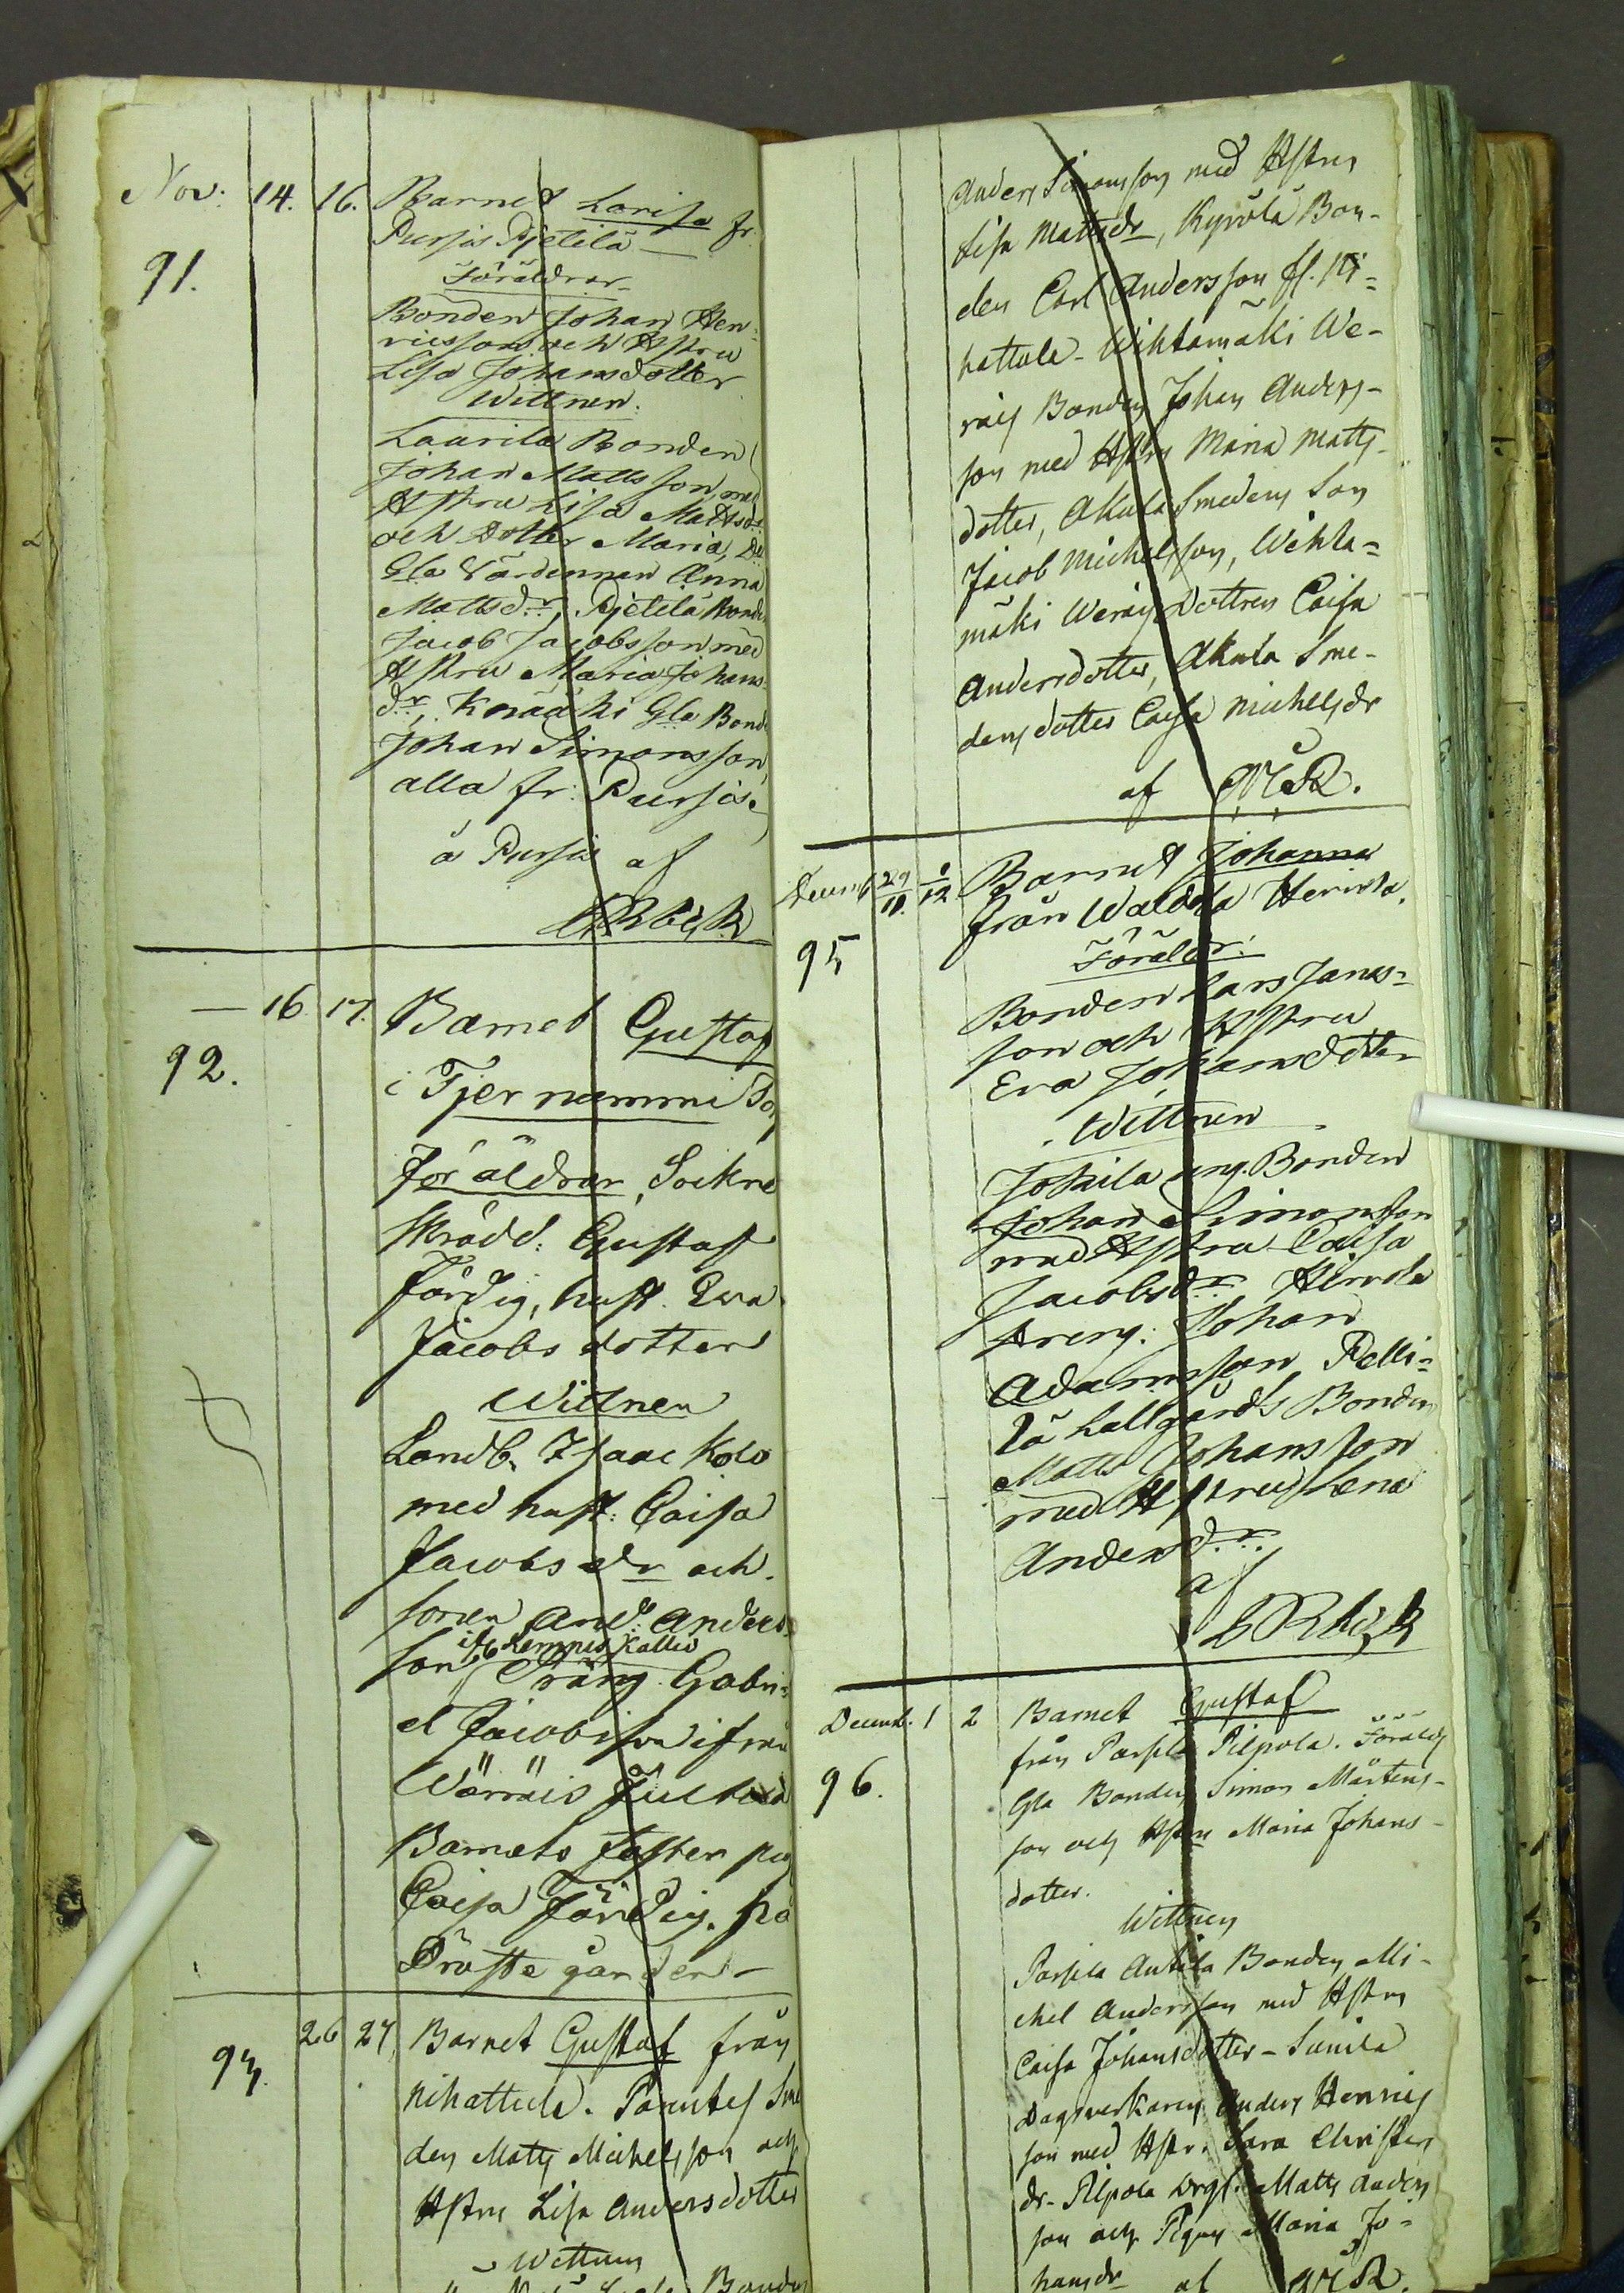 Nov: 14. 16. Barnet Lovisa fr.
91. Pursis Pjetilä
Föräldrar
Bonden Johan Hen-
ricsson och Hstru
Lisa Johansdotter
Wittnen.
Laurila Bonden
Johan Matts son med
Hstru Lisa Mattsdr
och Dotter Maria,
Gla Värdinnan Anna
Mattsdr, Pjetilä Bond
Jacob Jacobsson med
Hstru Maria Johans
dr, Knääki Gla Bond
Johan Simonsson,
alla fr: Pursis.
å Pursis af
— 16 17. Barnet Gustaf
92. i Tjernummi
föräldrar, Sockne
skrädd: Gustaf
Färdig, hust. Eva
Jacobs dotter
Wittnen
Landb. Isaac Kolo
med hust: Caisa
Jacobs dr och
sonen And: Anders
son, Kallio
Gabri-
el Jacobsson ifrån
Wännäis
Barnets faster pig
Caisa Färdig. på
Proste gården
26 27 Barnet Gustaf från
93. Nihattula. Sme
den Matts Michelsson och
Hstru Lisa Andersdotter
Wittnen
Bonden
Anders Simonsson med Hstru
Lisa Mattsdr, Kyrölä Bon-
den Carl Andersson fl. Ni-
hattula. Wihtamäki We-
räj Bonden Johan Anders-
son med Hstru Maria Matts-
dotter, Akula Smedens Son
Jacob Michelsson, Wihta-
mäki Weräj Dottren Caisa
Andersdotter, Akula Sme-
dens dotter Caisa Michelsdr
af
Decemb 29/11. 1/12 Barnet Johanna
95 från Waldola Heinola.
Föräldr:
Bonden Lars Jonas-
son och Hstru
Eva Johansdotter
Wittnen
Johaila ung. Bonden
Johan Simonsson
med Hstru Caisa
Jacobsdr
Johan
Adamsson,
hallgårds Bonden
Matts Johansson
med Hstru Lena
Andersdr
af
Decemb. 1 2 Barnet Gustaf
96. från Parsila Pilpola. Föräldr
Gla Bonden Simon Mårtens-
son och Hstru Maria Johans-
dotter.
Wittnen
Parsila Antila Bonden Mi-
chel Andersson med Hstru
Caisa Johansdotter - Sunila
Dagsverkaren Anders Henrics
son med Hstr. Sara Christers
dr. Pilpola Drgl. Matts Anders
son och Pigan Maria Jo-
hansdr af